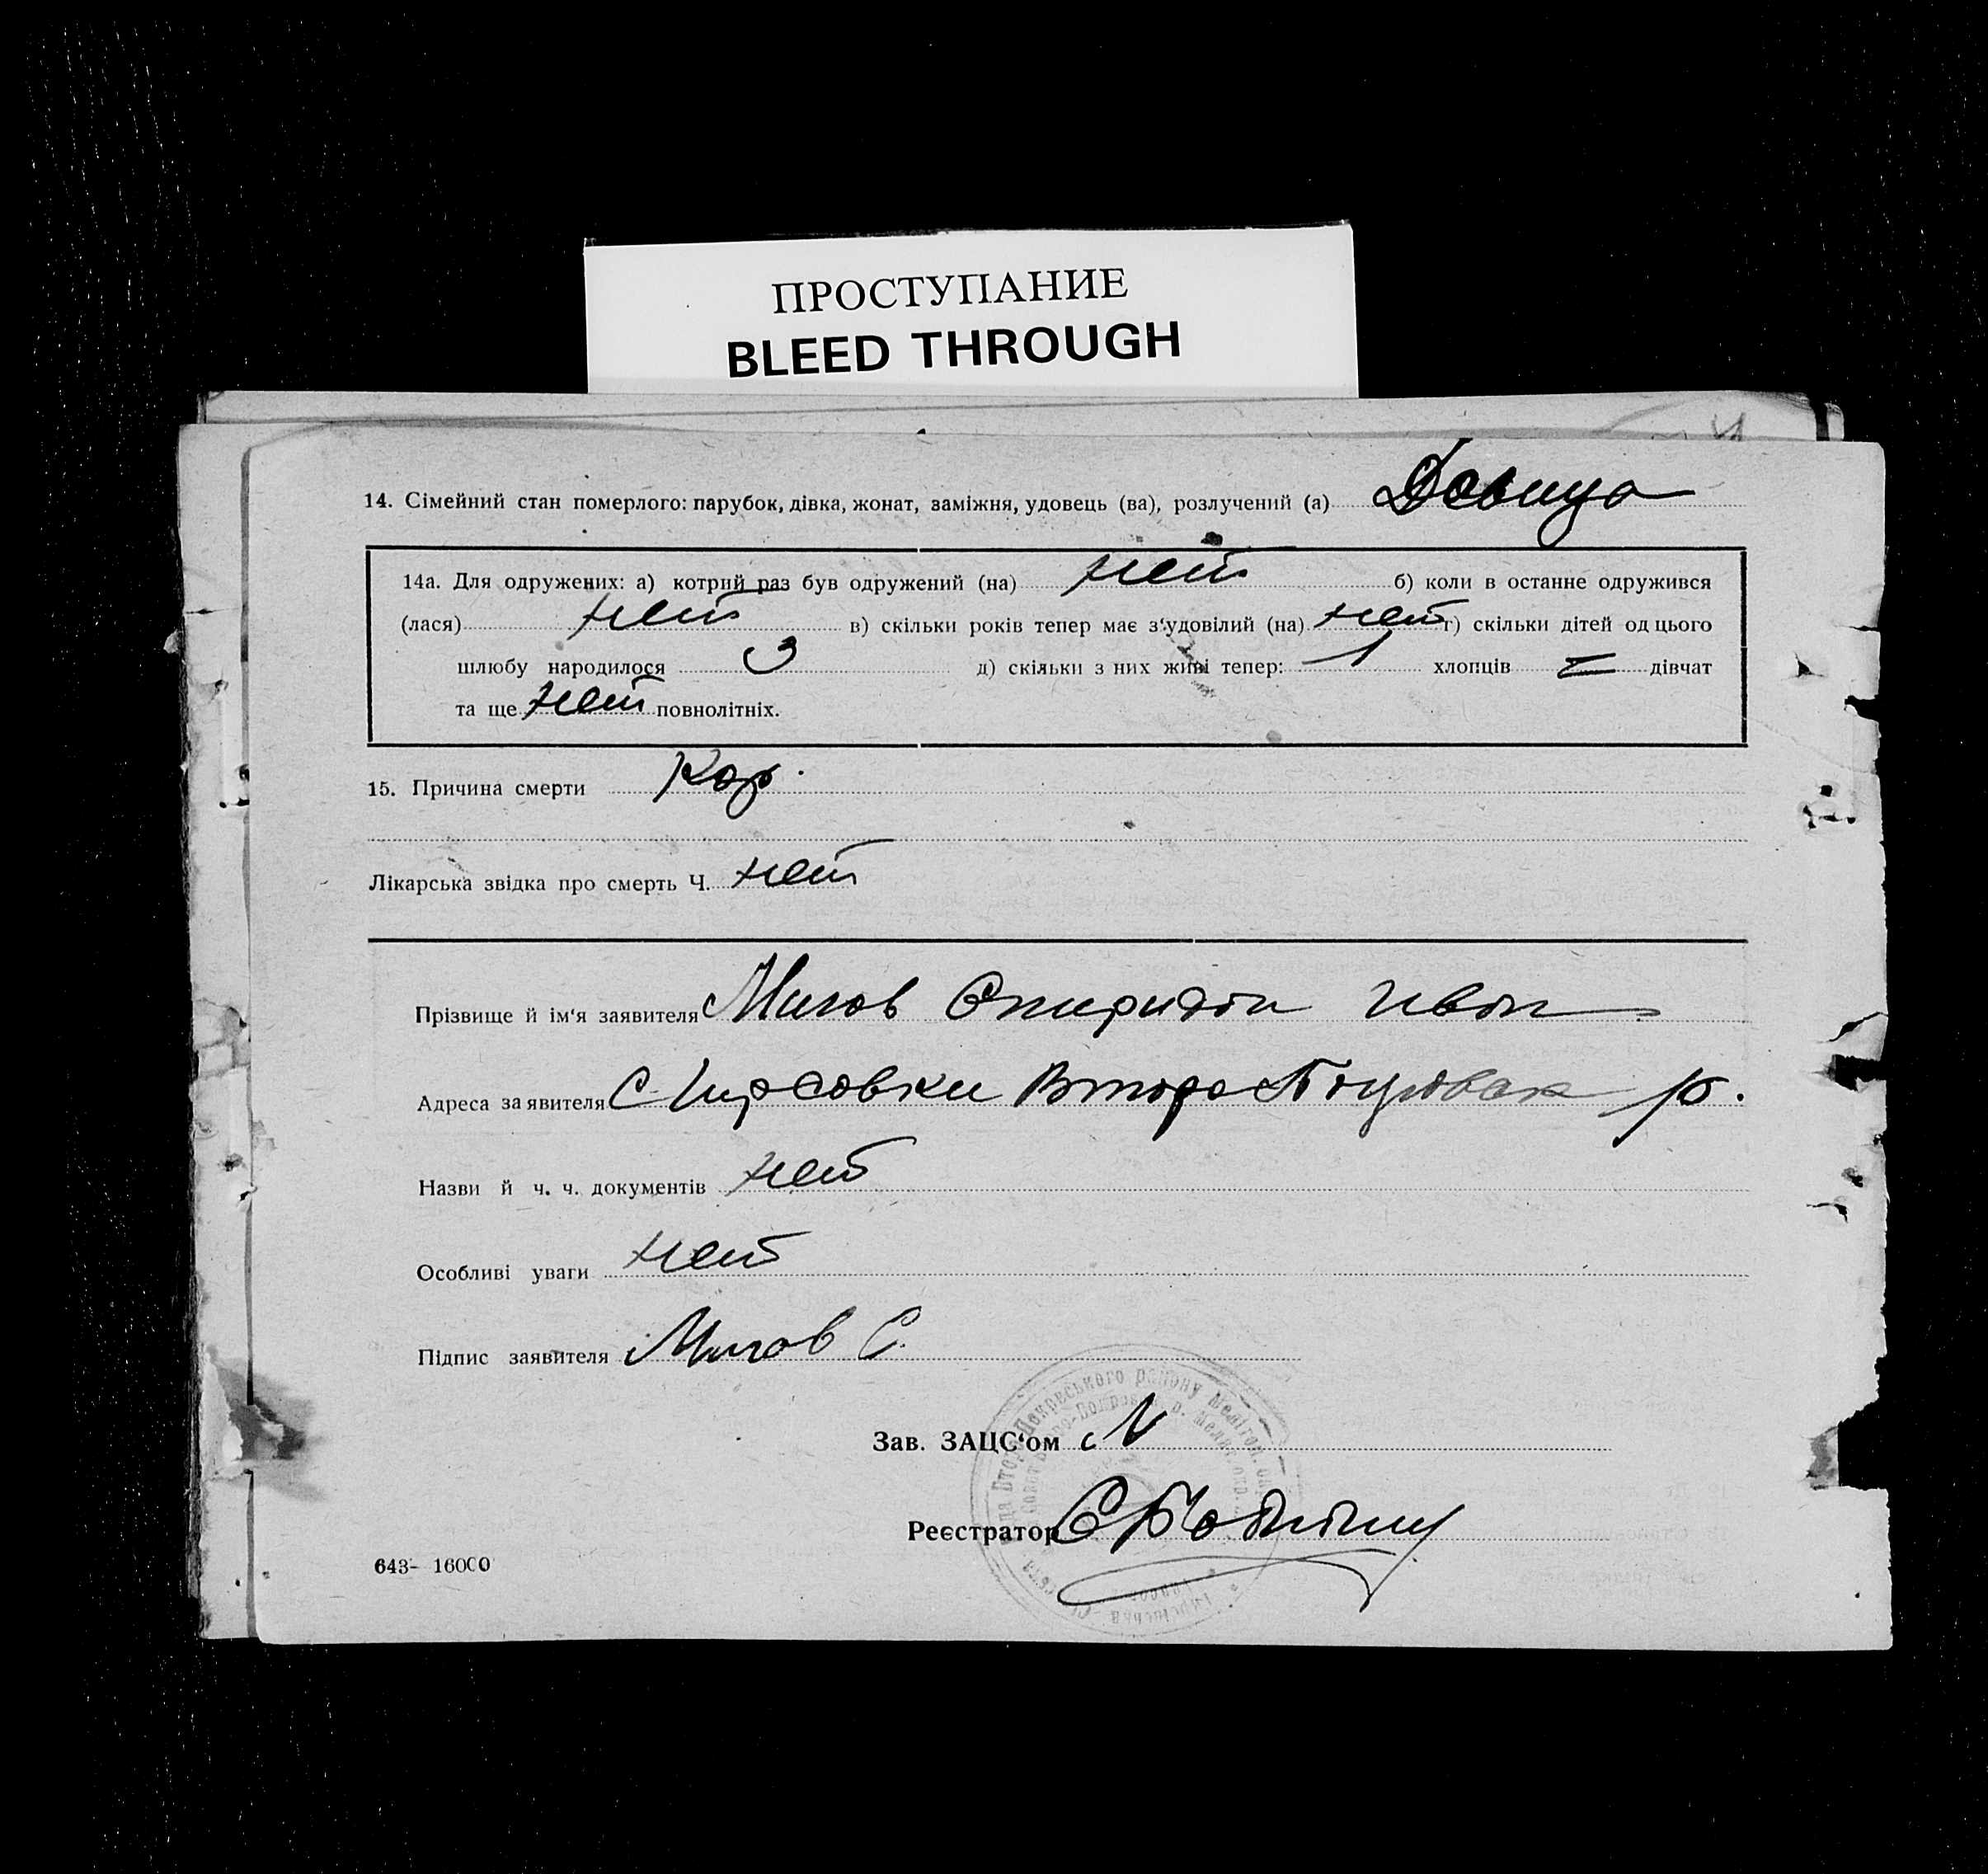 ПРОСТУПАНИЕ
BLEED THROUGH
14. Сімейний стан померлого: парубок, дівка, жонат, заміжня, удовець (ва), розлучений (а) Девица
14а. Для одружених: а) котрий раз був одружений (на) нет б) коли в останнє одружився
(лася) нет в) скільки років тепер має з'удовілий (на) нет г) скільки дітей од цього
шлюбу народилося 3 д) скільки з них живі тепер: 1 хлопців — дівчат
та ще нет повнолітніх.
15. Причина смерти Кор.
Лікарська звідка про смерть Ч. нет
Прізвище й ім'я заявителя Митов Спиридон Иван
Адреса заявителя с Гирсовки Второ Покровск р.
Назви й ч. ч. документів нет
Особливі уваги нет
Підпис заявителя Митов С.
Зав. ЗАЦС'ом
Реєстратор
643— 16000